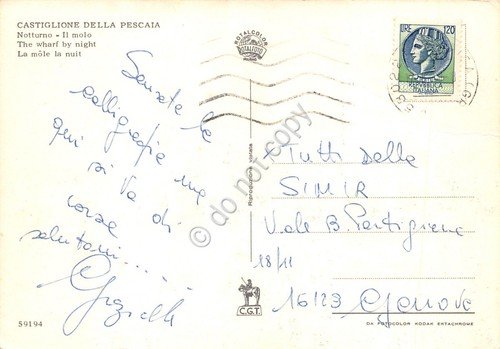 CASTIGLIONE DELLA PESCAIA
Notturno - Il molo
The wharf by night
La môle la nuit
Scusate la
calligrafia ma
qui si va di
corsa
salutoni.....
ROTALCOLOR
ROTALFOTO
MILANO
LIRE 120
REPUBBLICA
ITALIANA
Riproduzione vietata
do not copy
Tutti della
SIMIR
V.ale B. Partigiane
18/11
16129 Genova
C.G.T.
59194
DA FOTOCOLOR KODAK EKTACHROME